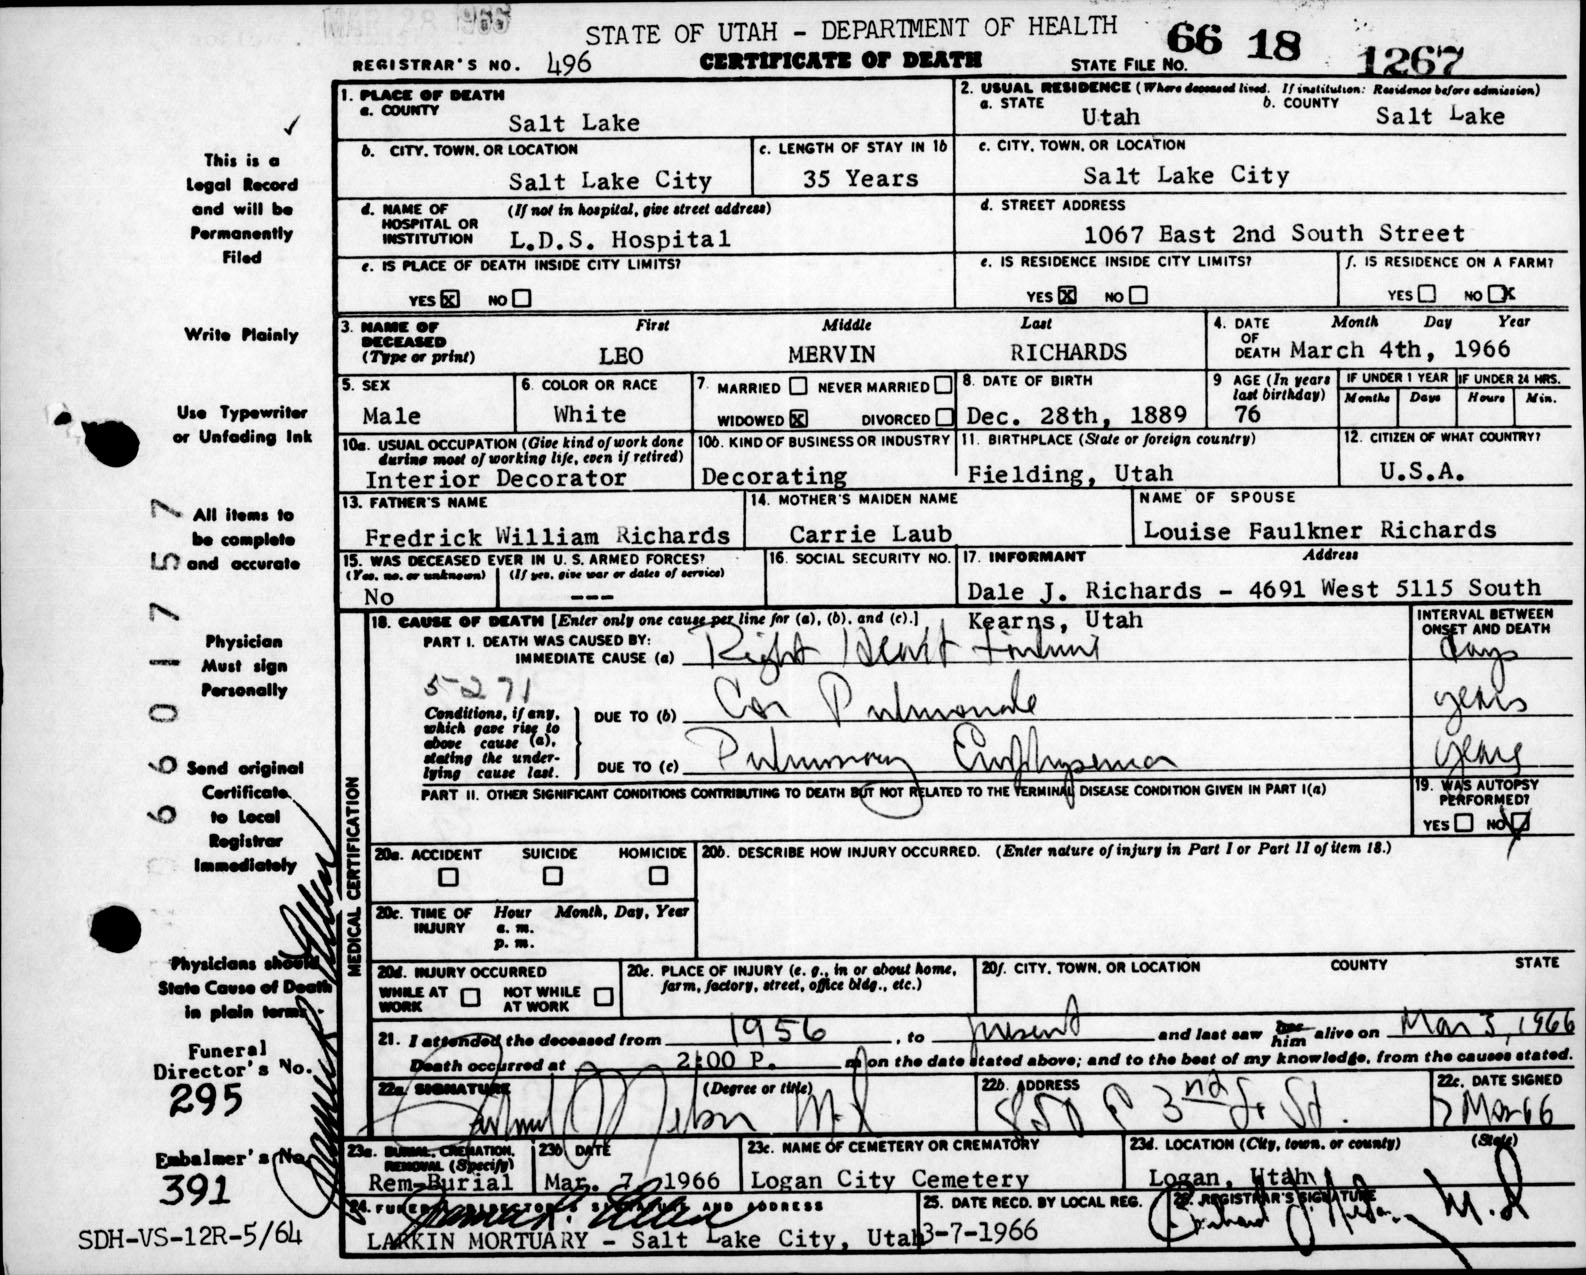 MAR 28 1966
STATE OF UTAH - DEPARTMENT OF HEALTH
66 18 1267
REGISTRAR'S NO. 496 CERTIFICATE OF DEATH STATE FILE NO.
This is a
Legal Record
and will be
Permanently
Filed
Write Plainly
Use Typewriter
or Unfading Ink
All items to
be complete
and accurate
Physician
Must sign
Personally
Send original
Certificate
to Local
Registrar
Immediately
Physicians should
State Cause of Death
in plain terms.
Funeral
Director's No.
295
Embalmer's No.
391
SDH-VS-12R-5/64
66017757
1. PLACE OF DEATH
a. COUNTY
Salt Lake
2. USUAL RESIDENCE (Where deceased lived. If institution: Residence before admission)
a. STATE b. COUNTY
Utah Salt Lake
b. CITY, TOWN, OR LOCATION
Salt Lake City
c. LENGTH OF STAY IN 1b
35 Years
c. CITY, TOWN, OR LOCATION
Salt Lake City
d. NAME OF (If not in hospital, give street address)
HOSPITAL OR
INSTITUTION L.D.S. Hospital
d. STREET ADDRESS
1067 East 2nd South Street
e. IS PLACE OF DEATH INSIDE CITY LIMITS?
YES X NO
e. IS RESIDENCE INSIDE CITY LIMITS?
YES X NO
f. IS RESIDENCE ON A FARM?
YES NO X
3. NAME OF First Middle Last
DECEASED
(Type or print) LEO MERVIN RICHARDS
4. DATE Month Day Year
OF
DEATH March 4th, 1966
5. SEX
Male
6. COLOR OR RACE
White
7. MARRIED NEVER MARRIED
WIDOWED X DIVORCED
8. DATE OF BIRTH
Dec. 28th, 1889
9 AGE (In years
last birthday)
76
IF UNDER 1 YEAR IF UNDER 24 HRS.
Months Days Hours Min.
10a. USUAL OCCUPATION (Give kind of work done
during most of working life, even if retired)
Interior Decorator
10b. KIND OF BUSINESS OR INDUSTRY
Decorating
11. BIRTHPLACE (State or foreign country)
Fielding, Utah
12. CITIZEN OF WHAT COUNTRY?
U.S.A.
13. FATHER'S NAME
Fredrick William Richards
14. MOTHER'S MAIDEN NAME
Carrie Laub
NAME OF SPOUSE
Louise Faulkner Richards
15. WAS DECEASED EVER IN U. S. ARMED FORCES?
(Yes, no, or unknown) (If yes, give war or dates of service)
No ---
16. SOCIAL SECURITY NO.
17. INFORMANT Address
Dale J. Richards - 4691 West 5115 South
Kearns, Utah
MEDICAL CERTIFICATION
18. CAUSE OF DEATH [Enter only one cause per line for (a), (b), and (c).]
INTERVAL BETWEEN
ONSET AND DEATH
PART I. DEATH WAS CAUSED BY:
IMMEDIATE CAUSE (a) Right Heart Failure days
5271
Conditions, if any,
which gave rise to
above cause (a),
stating the under-
lying cause last.
DUE TO (b) Cor Pulmonale years
DUE TO (c) Pulmonary Emphysema years
PART II. OTHER SIGNIFICANT CONDITIONS CONTRIBUTING TO DEATH BUT NOT RELATED TO THE TERMINAL DISEASE CONDITION GIVEN IN PART I(a)
19. WAS AUTOPSY
PERFORMED?
YES NO
20a. ACCIDENT SUICIDE HOMICIDE
20b. DESCRIBE HOW INJURY OCCURRED. (Enter nature of injury in Part I or Part II of item 18.)
20c. TIME OF Hour Month, Day, Year
INJURY a. m.
p. m.
20d. INJURY OCCURRED
WHILE AT NOT WHILE
WORK AT WORK
20e. PLACE OF INJURY (e. g., in or about home,
farm, factory, street, office bldg., etc.)
20f. CITY, TOWN, OR LOCATION COUNTY STATE
21. I attended the deceased from 1956, to present and last saw her him alive on Mar 3, 1966
Death occurred at 2:00 P. m on the date stated above; and to the best of my knowledge, from the causes stated.
22a. SIGNATURE (Degree or title)
Nelson M.D.
22b. ADDRESS
850 E 3nd So St.
22c. DATE SIGNED
7 Mar 66
23a. BURIAL, CREMATION,
REMOVAL (Specify)
Rem-Burial
23b DATE
Mar. 7, 1966
23c. NAME OF CEMETERY OR CREMATORY
Logan City Cemetery
23d. LOCATION (City, town, or county) (State)
Logan, Utah
24. FUNERAL DIRECTOR'S SIGNATURE AND ADDRESS
LARKIN MORTUARY - Salt Lake City, Utah
25. DATE RECD. BY LOCAL REG.
3-7-1966
26. REGISTRAR'S SIGNATURE
M.D